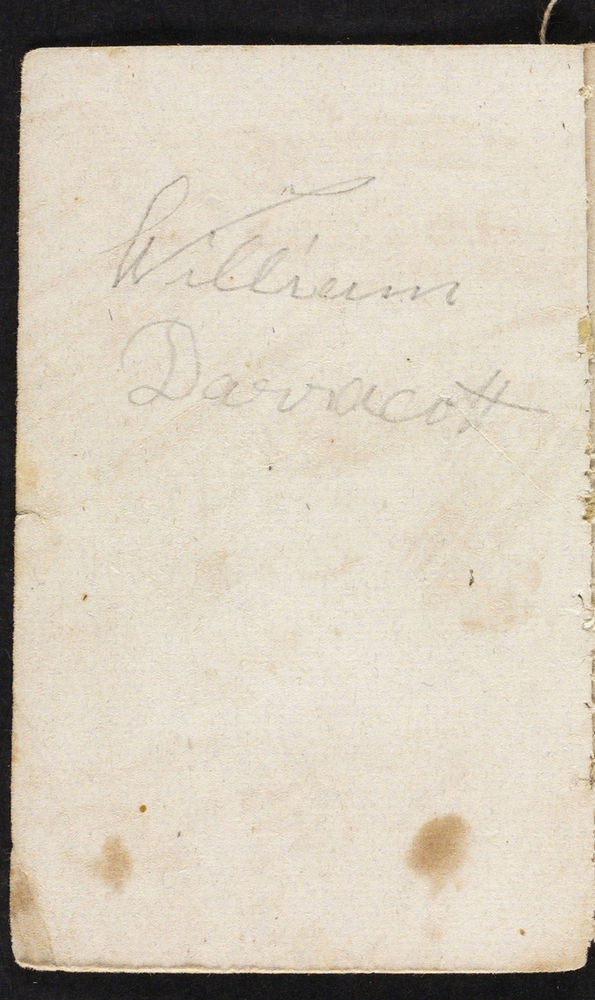 William
Darracott